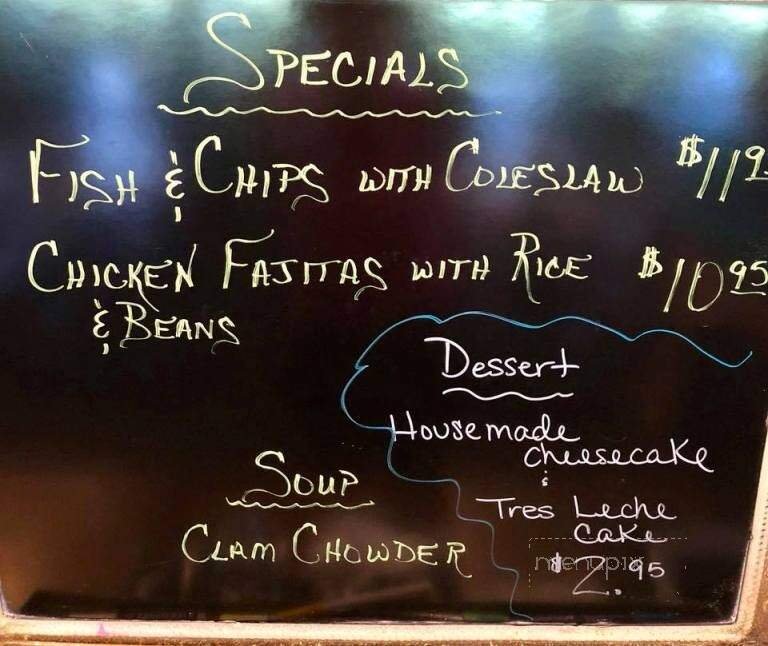 SPECIALS
FISH & CHIPS WITH COLESLAW $119
CHICKEN FAJITAS WITH RICE $10 95
& BEANS
Dessert
Housemade
cheesecake
&
Tres Leche
Cake
$2.95
SOUP
CLAM CHOWDER
menupix